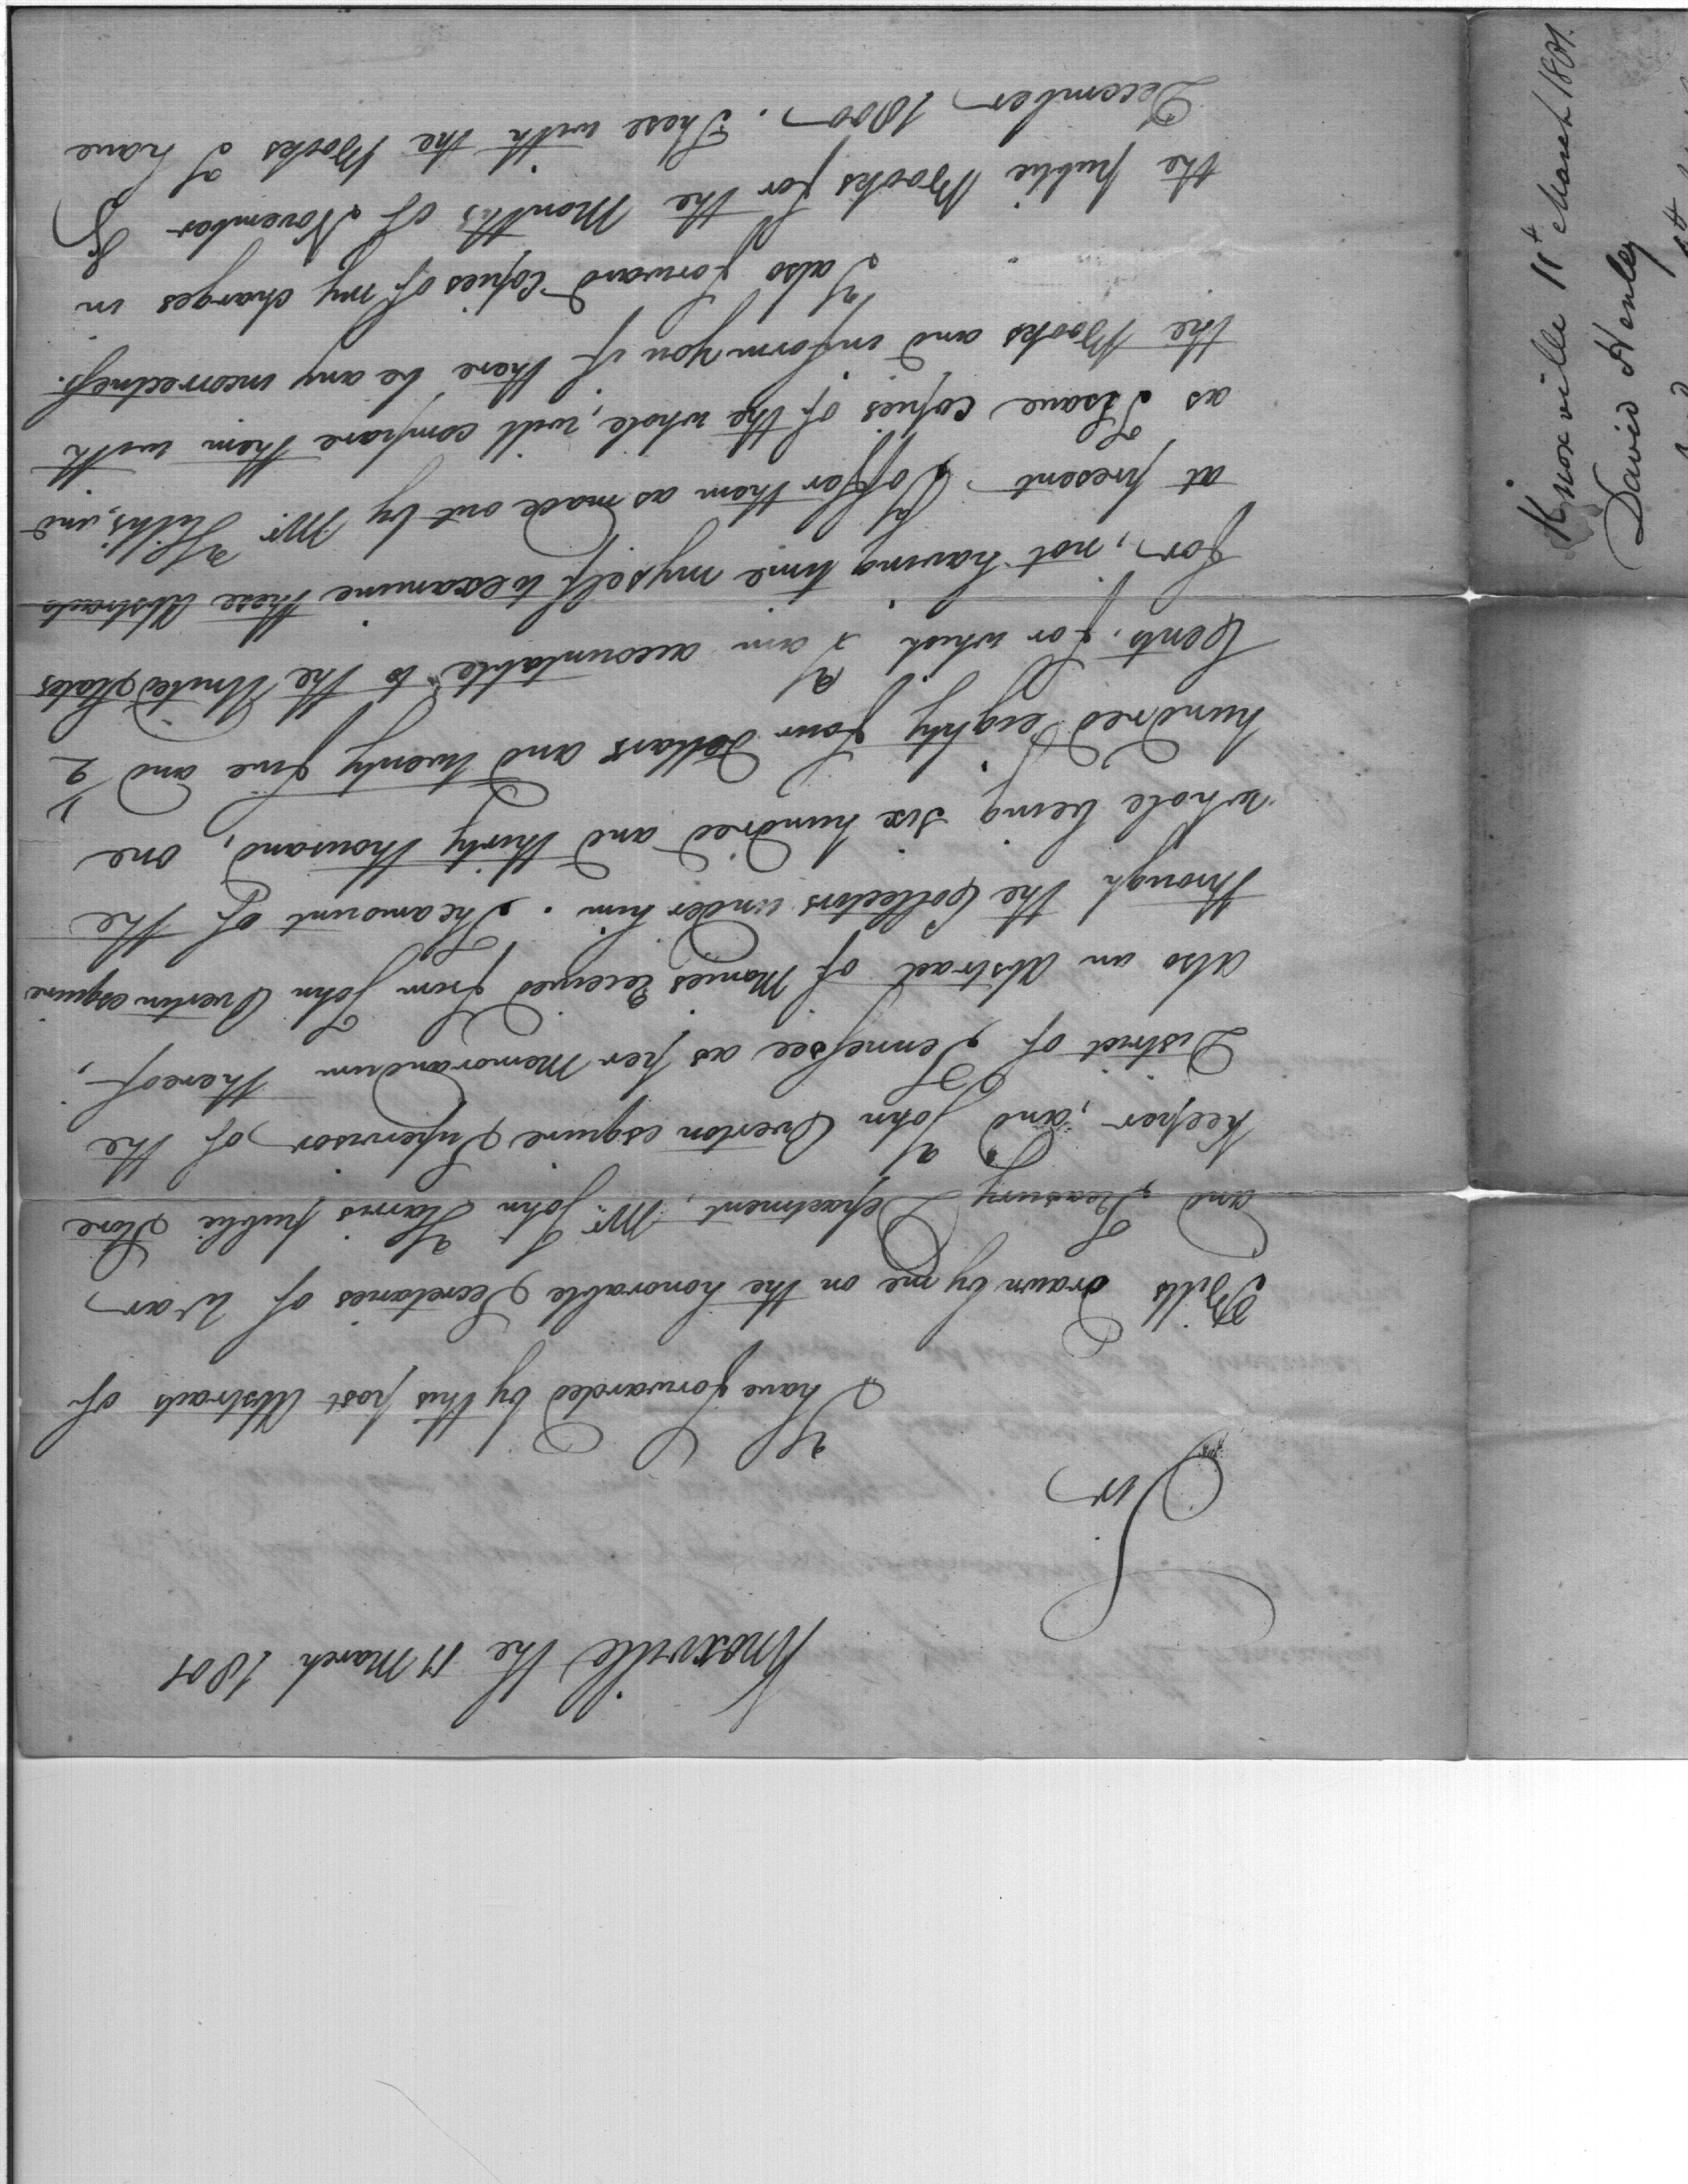 Knoxville the 11 March 1801
Sir
I have forwarded by this post Abstracts of
Bills drawn by me on the honorable Secretaries of War
and Treasury Department, Mr. John Harris public Store
Keeper, and John Overton esquire Supervisor of the
District of Tennessee as per Memorandum thereof,
also an Abstract of Monies received from John Overton esquire
through the Collectors under him. The amount of the
whole being six hundred and thirty thousand, one
hundred eighty four Dollars and twenty five and 1/2
Cents. for which I am accountable to the United States
for, not having time myself to examine these Abstracts
at present I offer them as made out by Mr. and
as I have copies of the whole, will compare them with
the Books and inform you if there be any incorrectness.
I also forward Copies of my charges in
the public Books for the Months of November &
December 1800. These with the Books I have
Knoxville 11th March 1801.
David Henley